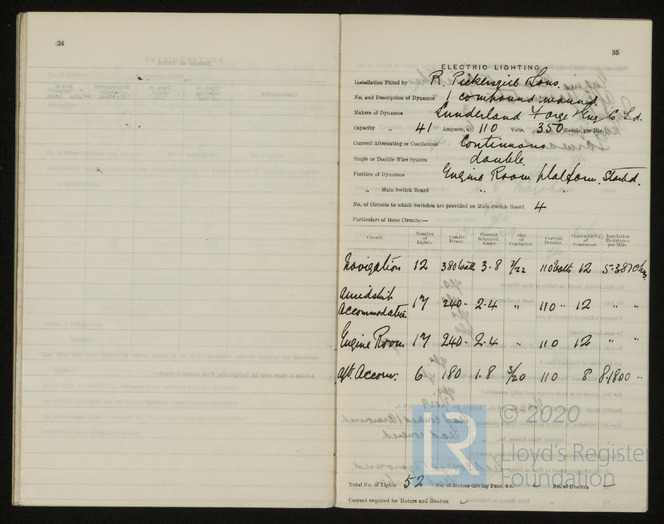 34
35
ELECTRIC LIGHTING
Installation Fitted by R. Pickersgill & Sons.
No. and Description of Dynamos 1 compound wound.
Makers of Dynamos Sunderland Forge & Eng Co Ld.
Capacity „ 41 Amperes, at 110 Volts, 350 Revols. per Min.
Current Alternating or Continuous Continuous
Single or Double Wire System double
Position of Dynamos Engine Room platform, Starbd.
„ Main Switch Board „ „ „
No. of Circuits to which Switches are provided on Main Switch Board 4
Particulars of these Circuits:—
Circuit. Number of Lights. Candle Power. Current Required. Amps. Size of Conductor. Current Density. Conductivity of Conductor. Insulation Resistance per Mile.
Navigation 12 380 Watts 3.8 7/22 110 Volts 12
Amidship
Accommodation 17 240 - 2.4 „ 110 „ 12 „ „
Engine Room 17 240 - 2.4 „ 110 12 „ „
Aft. Accom. 6 180 1.8 3/20 110 8
Total No. of Lights 52 No. of Motors driving Fans, &c. No. of Heaters
Current required for Motors and Heaters
LR
© 2020
Lloyd's Register
Foundation